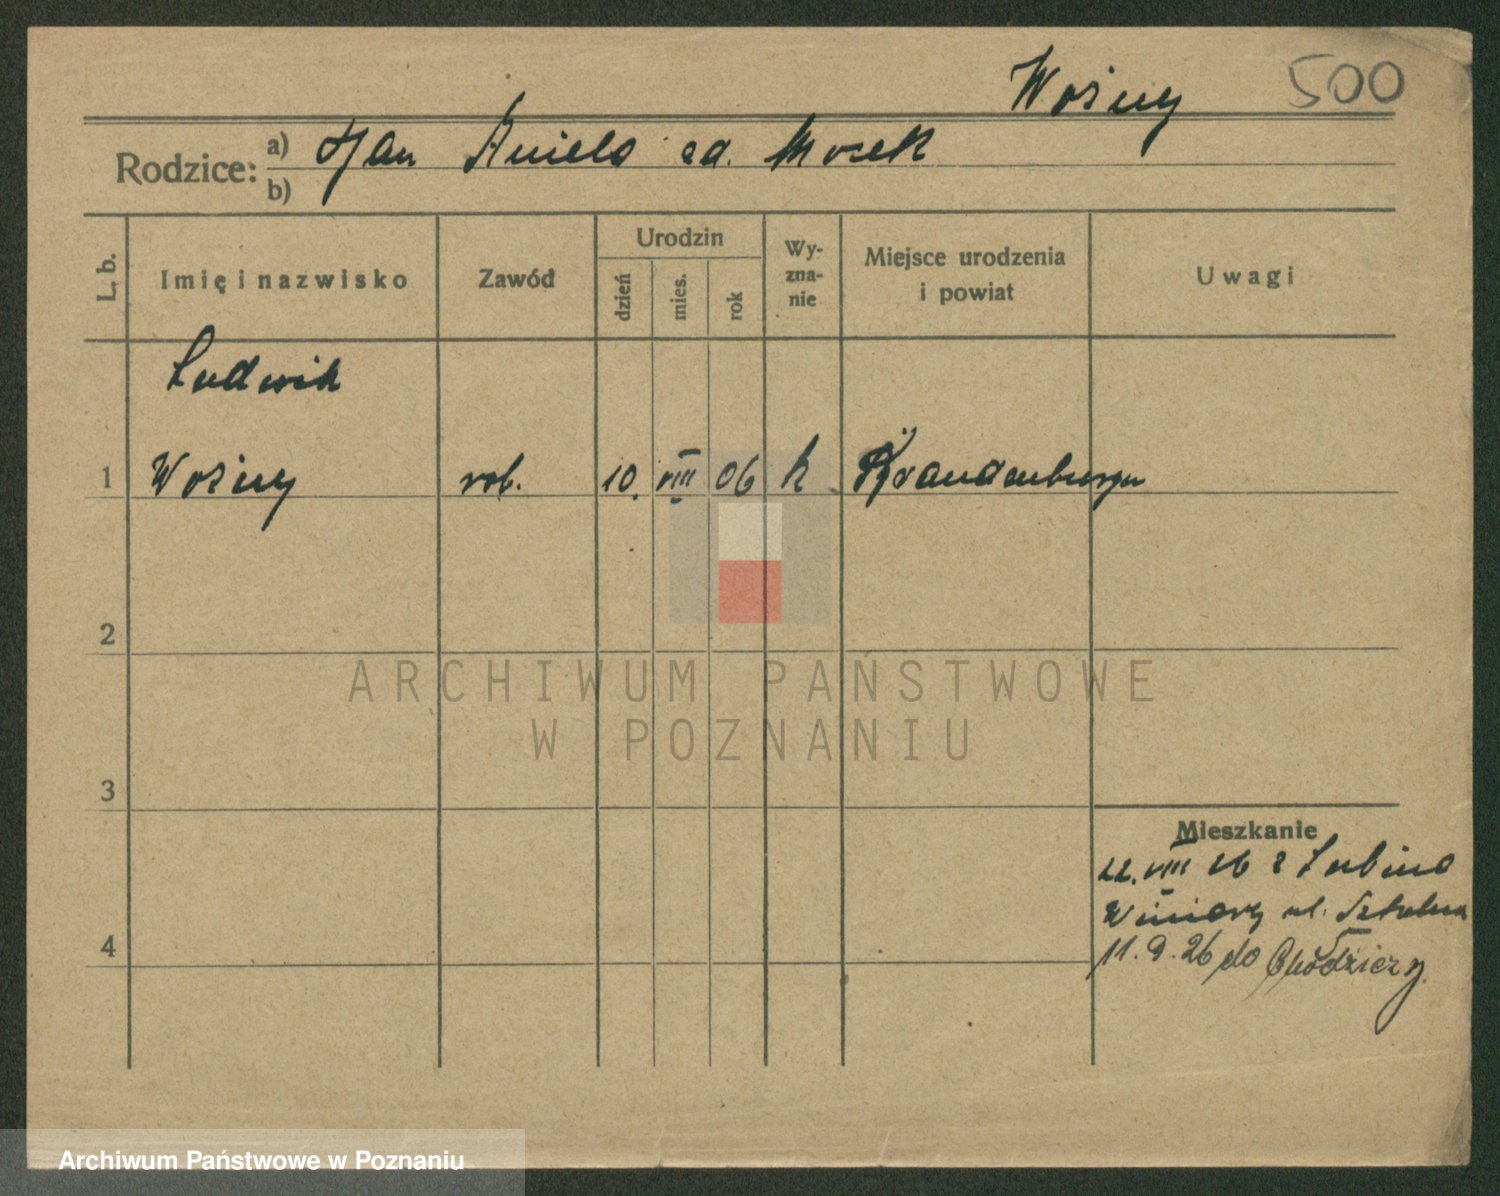 Woźny 500
Rodzice: a) Jan Aniela zd. Mosek
b)
L. b. Imię i nazwisko Zawód Urodzin dzień mies. rok Wy-zna-nie Miejsce urodzenia i powiat Uwagi
Ludwik
1 Woźny rob. 10. VIII 06 k Brandenburgia
2
ARCHIWUM PAŃSTWOWE
W POZNANIU
3
Mieszkanie
22. VIII 26 z Lubina
Winiary ul. Szkolna
4 11.9.26 do Chodzieży
Archiwum Państwowe w Poznaniu